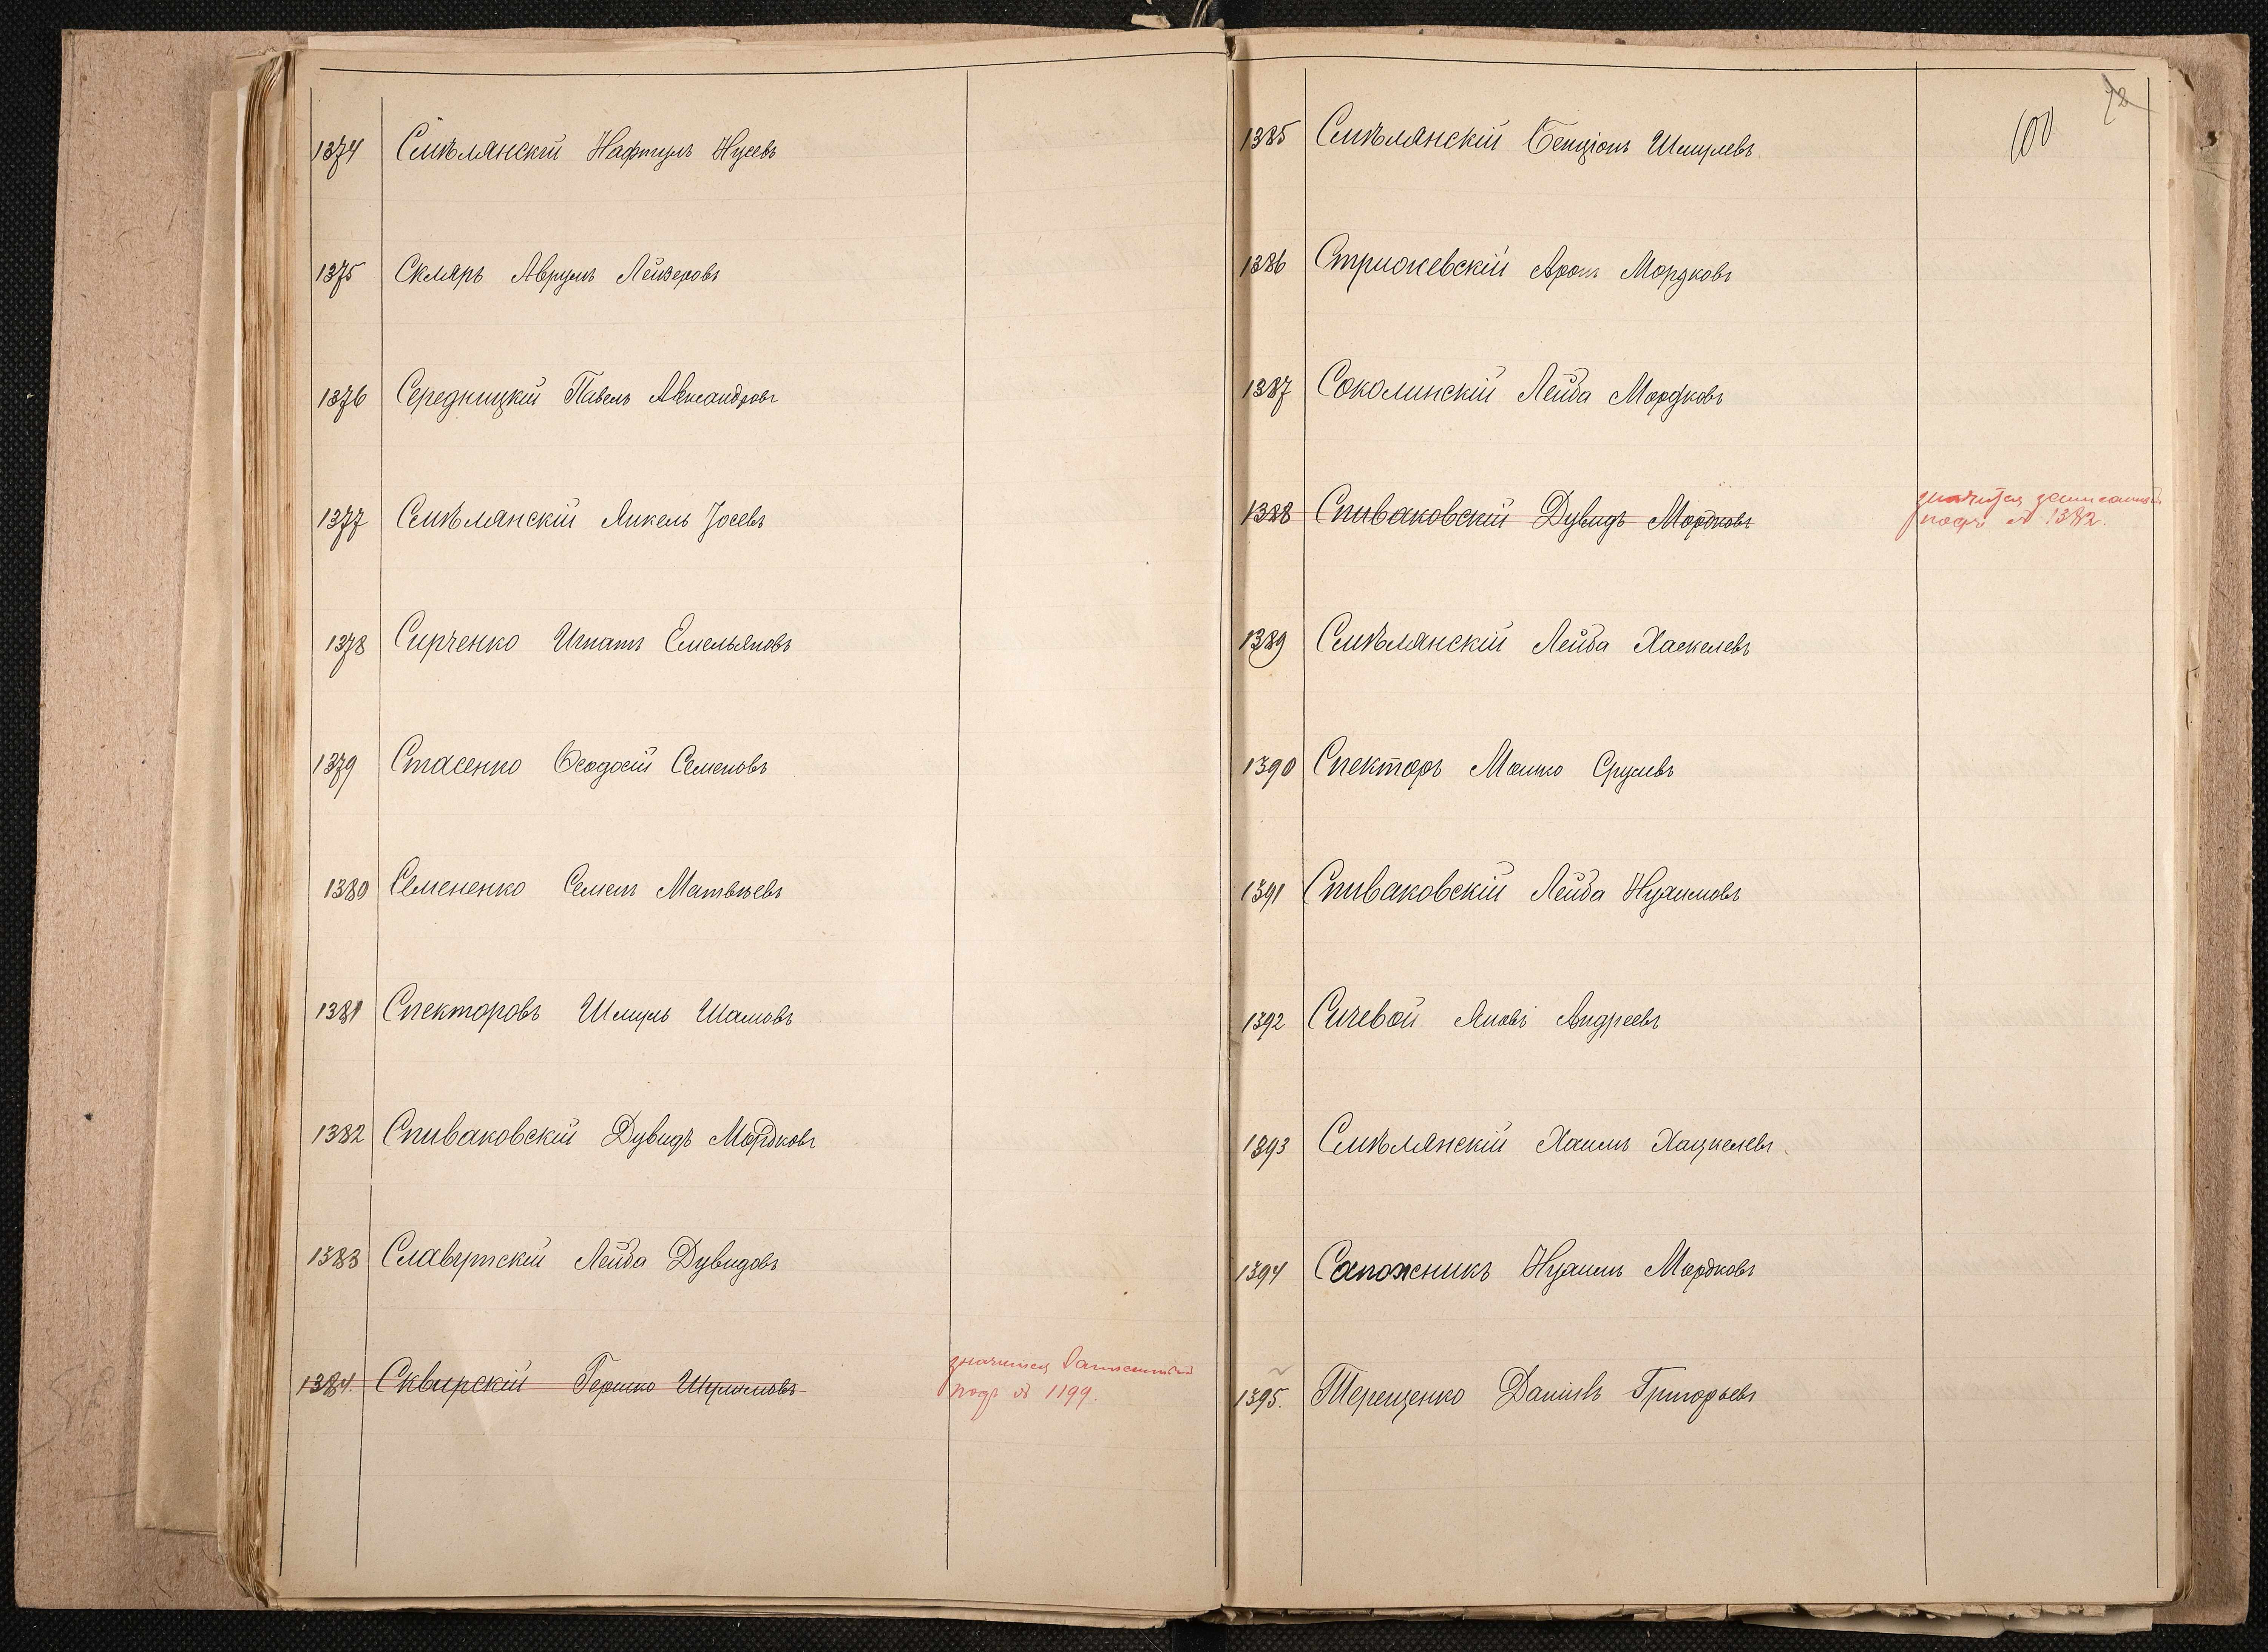 1374 Смѣлянскій Нафтулъ Нусевъ
1375 Скляръ Аврумъ Лейзеровъ
1376 Середницкій Павелъ Александровъ
1377 Смѣлянскій Янкель Іосевъ
1378 Сирченко Игнатъ Емельяновъ
1379 Стасенко Ѳеодосій Семеновъ
1380 Семененко Семенъ Матвѣевъ
1381 Спекторовъ Шмуль Шамовъ
1382 Спиваковскій Дувидъ Мордковъ
1383 Славутскій Лейба Дувидовъ
1384. Сквирскій Гершко Шулимовъ
значится записанный
подъ № 1199.
72
100
1385 Смѣлянскій Бенціонъ Шмулевъ
1386 Стрижевскій Аронъ Мордковъ
1387 Соколинскій Лейба Мордковъ
1388 Спиваковскій Дувидъ Мордковъ
значится записанный
подъ № 1382.
1389 Смѣлянскій Лейба Хаскелевъ
1390 Спекторъ Мошко Срулевъ
1391 Спиваковскій Лейба Нухимовъ
1392 Сичевой Яковъ Андреевъ
1393 Смѣлянскій Хаимъ Хацкелевъ
1394 Сапожникъ Нухимъ Мордковъ
1395. Терещенко Даніилъ Григорьевъ